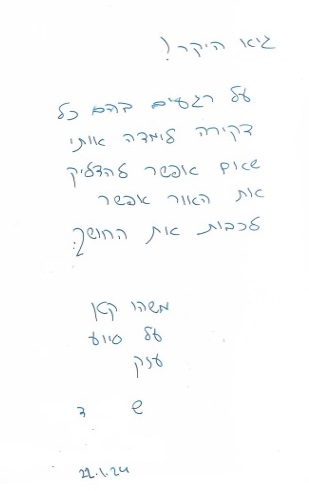 גיא היקר!
על רגעים בהם כל
דקירה לימדה אותי
שאם אפשר להדליק
את האור אפשר
לכבות את החושך.
משהו קטן
על סיוע
ענק
ש ד
22.1.24